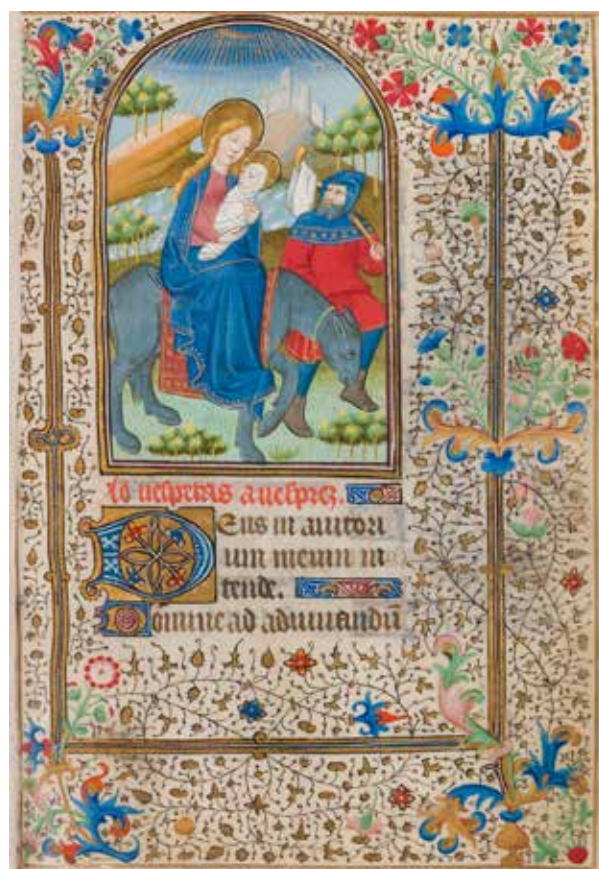 Ad vesperas a vesprez.
Deus in adiutori
um meum in
tende.
Domine ad adiuuandū